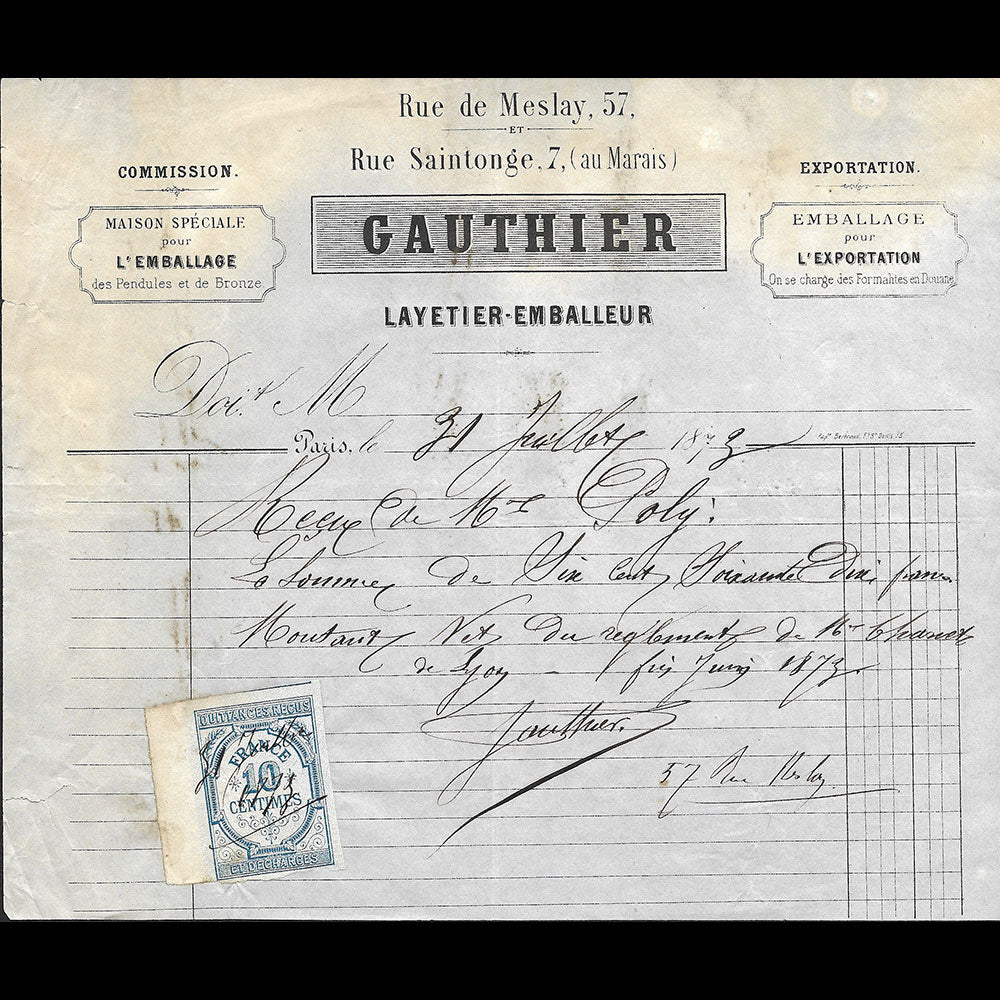 Rue de Meslay, 57,
ET
Rue Saintonge, 7, (au Marais)
COMMISSION.
MAISON SPÉCIALE
pour
L'EMBALLAGE
des Pendules et de Bronze
GAUTHIER
LAYETIER-EMBALLEUR
EXPORTATION.
EMBALLAGE
pour
L'EXPORTATION
On se charge des Formalités en Douane
Doit M
Paris, le 31 Juillet 1873
Recu de Mr Poly.
La Somme de Six Cent Soixante dix francs
Montant Net du reglement de Mr Chanet
de Lyon - fin Juin 1873
Gauthier
57 Rue Meslay
QUITTANCES REÇUS
FRANCE
10
CENTIMES
ET DÉCHARGES